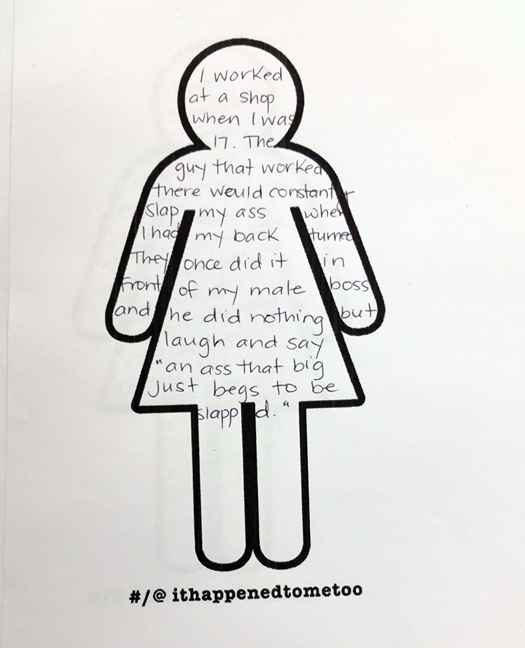 I worked
at a shop
when I was
17. The
guy that worked
there would constant
slap my ass when
I had my back turned
They once did it in
front of my male boss
and he did nothing but
laugh and say
"an ass that big
just begs to be
slapped."
#/@ ithappenedtometoo